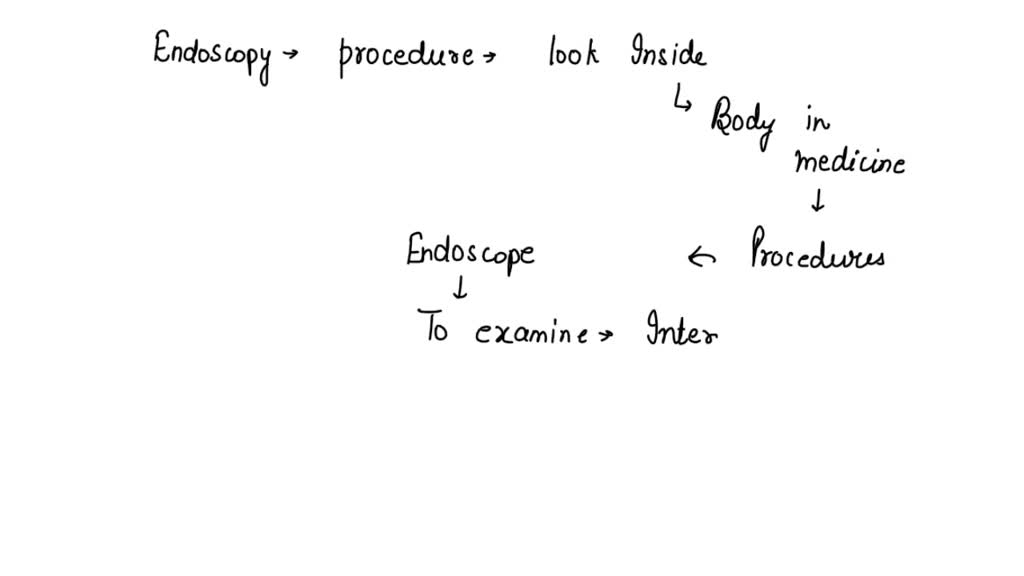 Endoscopy → procedure → look Inside
↳ Body in
medicine
↓
Endoscope ← Procedures
↓
To examine → Inter